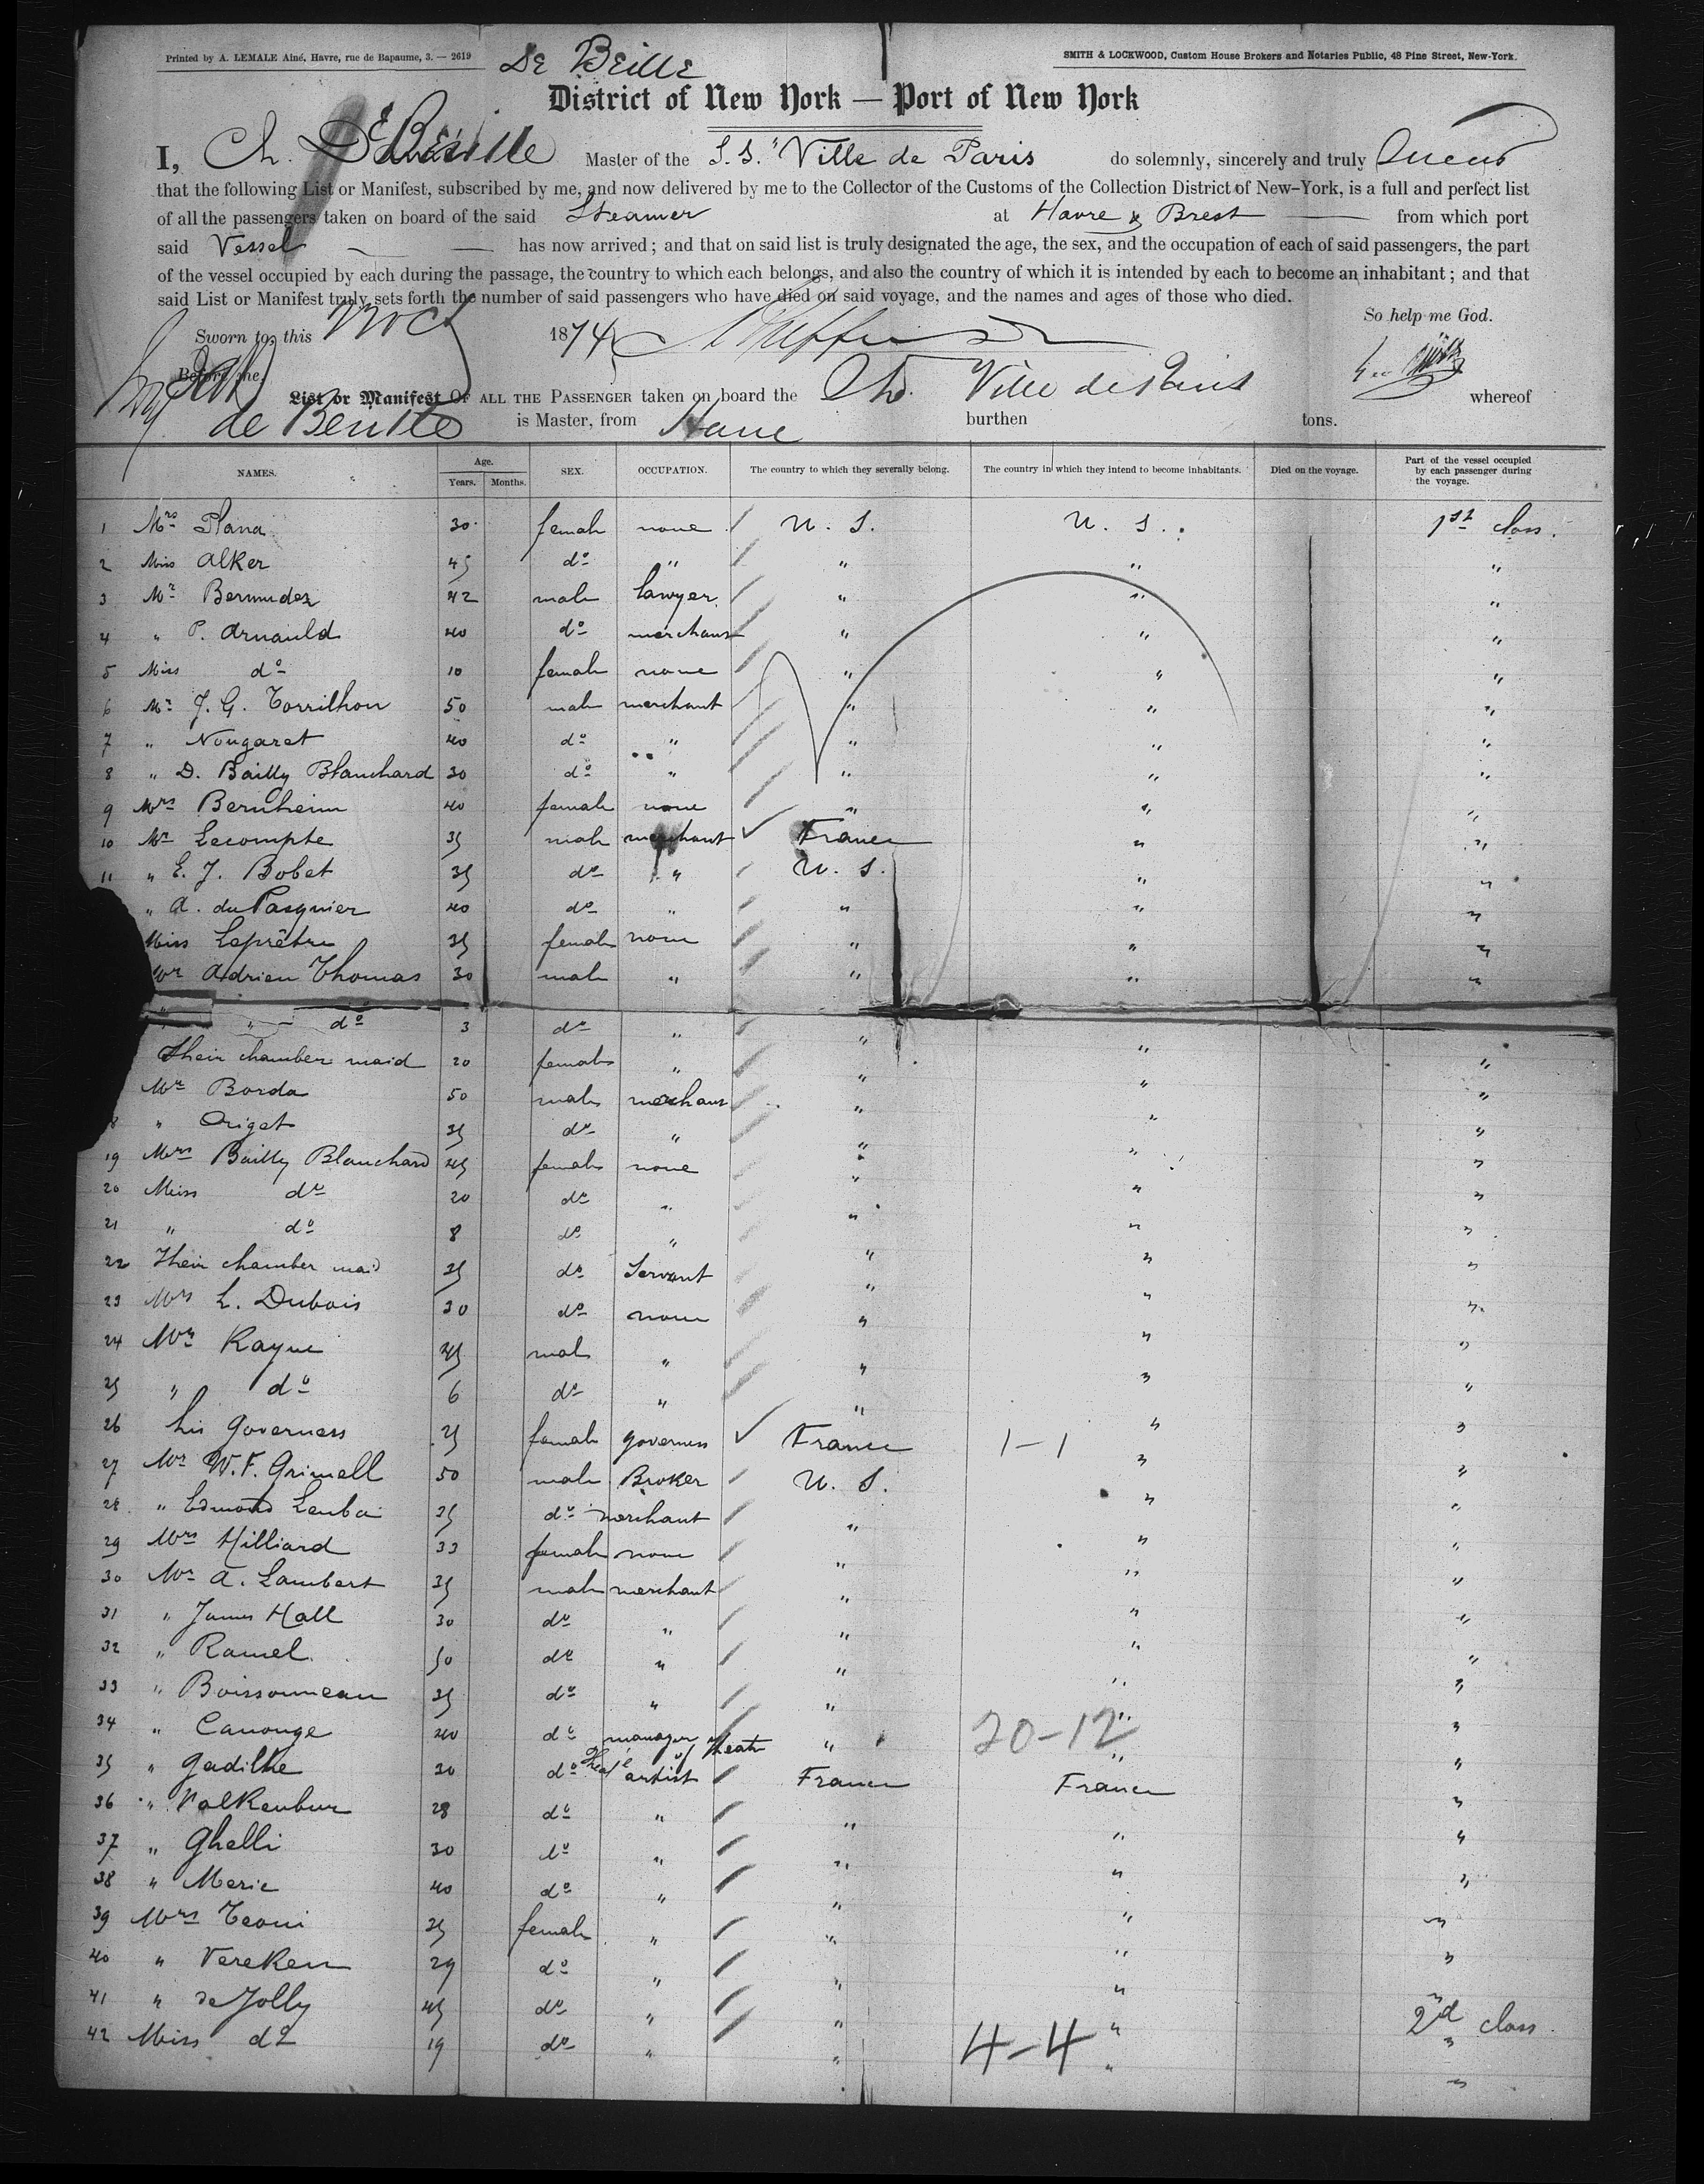 Printed by A. LEMALE Ainé, Havre, rue de Bapaume, 3. — 2619
De Beille
SMITH & LOCKWOOD, Custom House Brokers and Notaries Public, 48 Pine Street, New-York.
District of New York — Port of New York
I, Ch. De Beille Master of the S.S. "Ville de Paris do solemnly, sincerely and truly Swear
that the following List or Manifest, subscribed by me, and now delivered by me to the Collector of the Customs of the Collection District of New-York, is a full and perfect list
of all the passengers taken on board of the said Steamer at Havre & Brest from which port
said Vessel has now arrived; and that on said list is truly designated the age, the sex, and the occupation of each of said passengers, the part
of the vessel occupied by each during the passage, the country to which each belongs, and also the country of which it is intended by each to become an inhabitant; and that
said List or Manifest truly sets forth the number of said passengers who have died on said voyage, and the names and ages of those who died.
So help me God.
Sworn to, this Oct 1874
Before me,
List or Manifest OF ALL THE PASSENGER taken on board the Ville de Paris whereof
de Beille is Master, from Havre burthen tons.
NAMES. Age. Years. Months. SEX. OCCUPATION. The country to which they severally belong. The country in which they intend to become inhabitants. Died on the voyage. Part of the vessel occupied by each passenger during the voyage.
1 Mrs Plana 30 female none U. S. U. S. 1st class.
2 Miss Alker 45 do " " " "
3 Mr Bermudez 42 male lawyer " " "
4 " P. Arnauld 40 do merchant " " "
5 Miss do 10 female none " " "
6 Mr J. G. Torrilhon 50 male merchant " " "
7 " Nougaret 40 do " " " "
8 " D. Bailly Blanchard 30 do " " " "
9 Mrs Bernheim 40 female none " " "
10 Mr Lecompte 35 male merchant France " "
11 " E. J. Bobet 35 do " U. S. " "
" A. du Pasquier 40 do " " " "
Miss Leprêtre 35 female none " " "
Mr Adrien Thomas 30 male " " " "
" " do 3 do " " "
Their chamber maid 20 female " " " "
Mr Borda 50 male merchant " " "
8 " Origet 35 do " " " "
19 Mrs Bailly Blanchard 45 female none " " "
20 Miss do 20 do " " " "
21 " do 8 do " " " "
22 Their chamber maid 35 do Servant " " "
23 Mrs L. Dubois 30 do none " " "
24 Mr Rayne 45 male " " " "
25 " do 6 do " " " "
26 his governess 25 female governess France 1-1 " "
27 Mr W. F. Grinnell 50 male Broker U. S. " "
28 " Edmond Leuba 25 do merchant " " "
29 Mrs Hilliard 33 female none " " "
30 Mr A. Lambert 35 male merchant " " "
31 " James Hall 30 do " " " "
32 " Ramel 50 do " " " "
33 " Boissonneau 35 do " " " "
34 " Canonge 40 do manager of theatre " 20-12 " "
35 " Gadilhe 30 do artist France France "
36 " Valkenbur 28 do " " " "
37 " Ghelli 30 do " " " "
38 " Meric 40 do " " " "
39 Mrs Teoni 25 female " " " "
40 " Vereken 29 do " " " "
41 " de Jolly 45 do " " " 2d class
42 Miss do 19 do " " 4-4 " "